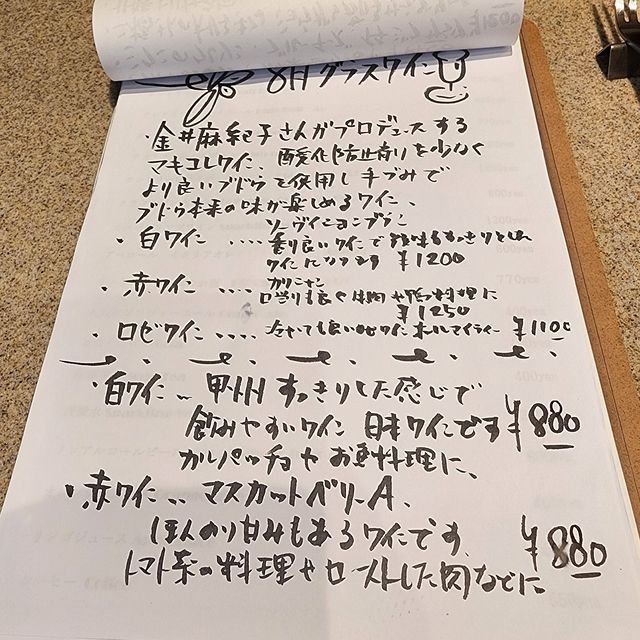 8月グラスワイン
・金井麻紀子さんがプロデュースする
マキコレワイン、酸化防止剤を少なく
より良いブドウを使用し手づみで
ブドウ本来の味が楽しめるワイン、
ソーヴィニョンブラン
・白ワイン ....香り良いワインで
ワインになってます ¥1200
・赤ワイン ....カリニャン
口当りも良く 肉や鴨料理に
¥1250
・ロゼワイン....冷やしても良い ¥1100
・白ワイン .. 甲州 すっきりした感じで
飲みやすいワイン 日本ワインです ¥880
カルパッチョや お魚料理に、
・赤ワイン .. マスカットベリーA、
ほんのり甘みもあるワインです、
トマト系の料理やローストした肉などに ¥880